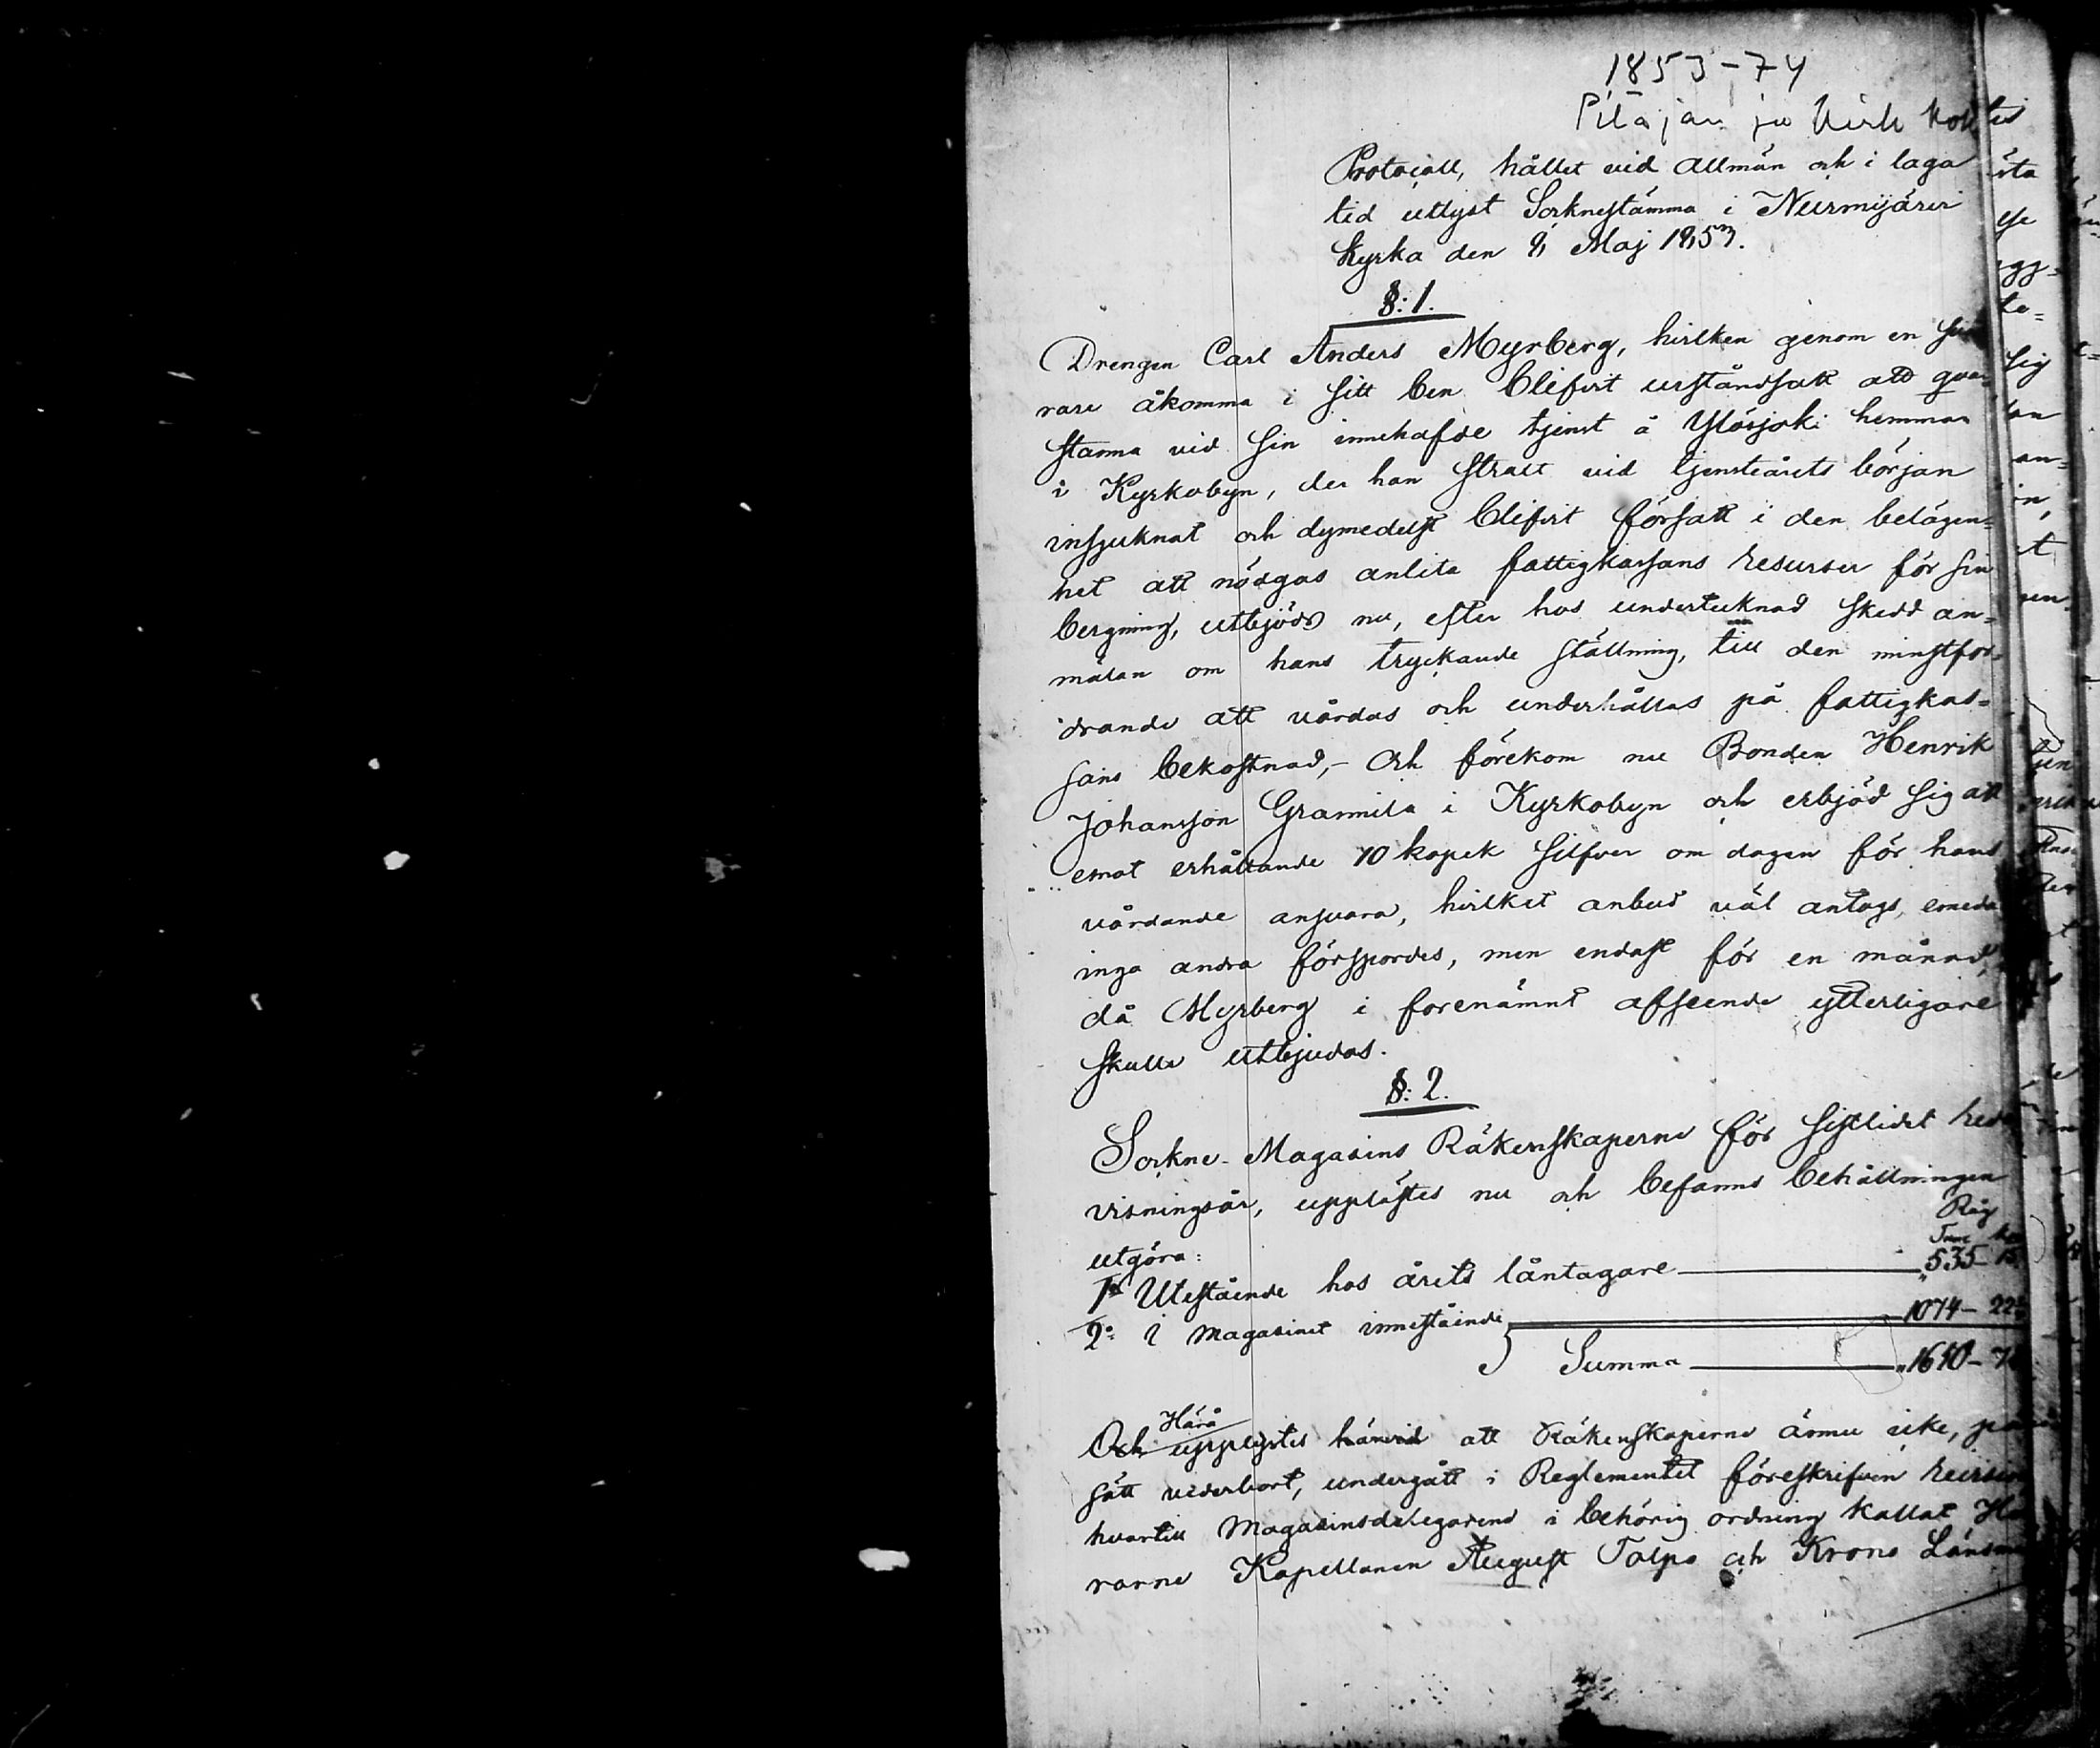 1853-74
Pitäjän ja Kirk kok
Protocoll, hållet vid allmän och i laga
tid utlyst Sockneståmma i Nurmijärvi
Kyrka den 8 Maj 1853.
§: 1.
Drengen Carl Anders Myrberg, hvilken genom en svå
rare åkomma i sitt ben blifvit urståndsatt att qvar
stanna vid sin innehafde tjenst å Ylösjoki hemman
i Kyrkobyn, der han strax vid tjensteårets början
insjuknat och dymedelst blifvit försatt i den belägen=
het att nödgas anlita fattigkassans resurser för sin
bergning, utbjöds nu, efter hos undertecknad skedd an=
mälan om hans tryckande ställning, till den minstfor=
drande att vårdas och underhållas på fattigkas=
sans bekostnad,- och förekom nu Bonden Henrik
Johansson Grannila i Kyrkobyn och erbjöd sig att
emot erhållande 10 kopek silfver om dagen för hans
vårdande ansvara, hvilket anbud väl antogs, emeda
inga andra förspordes, men endast för en månad,
då Myrberg i förenämnt afseende ytterligare
skulle utbjudas.
§: 2.
Sockne-Magasins Räkenskaperne för sistlidet redo
visningsår, upplästes nu och befanns behållningen
utgöra: Råg
Tunn kap
1° Utestående hos årets låntagare 535- 15
2° I magasinet innestående 1074- 22
Summa 1610- 7
Härå
Och upplystes härvid att Räkenskaperne ännu icke, på
sätt vederbort, undergått i Reglementet föreskrifven revision
hvartill Magasinsdelegarend i behörig ordning kallat He
rarne Kapellanen August Talpo och Krono Länsm